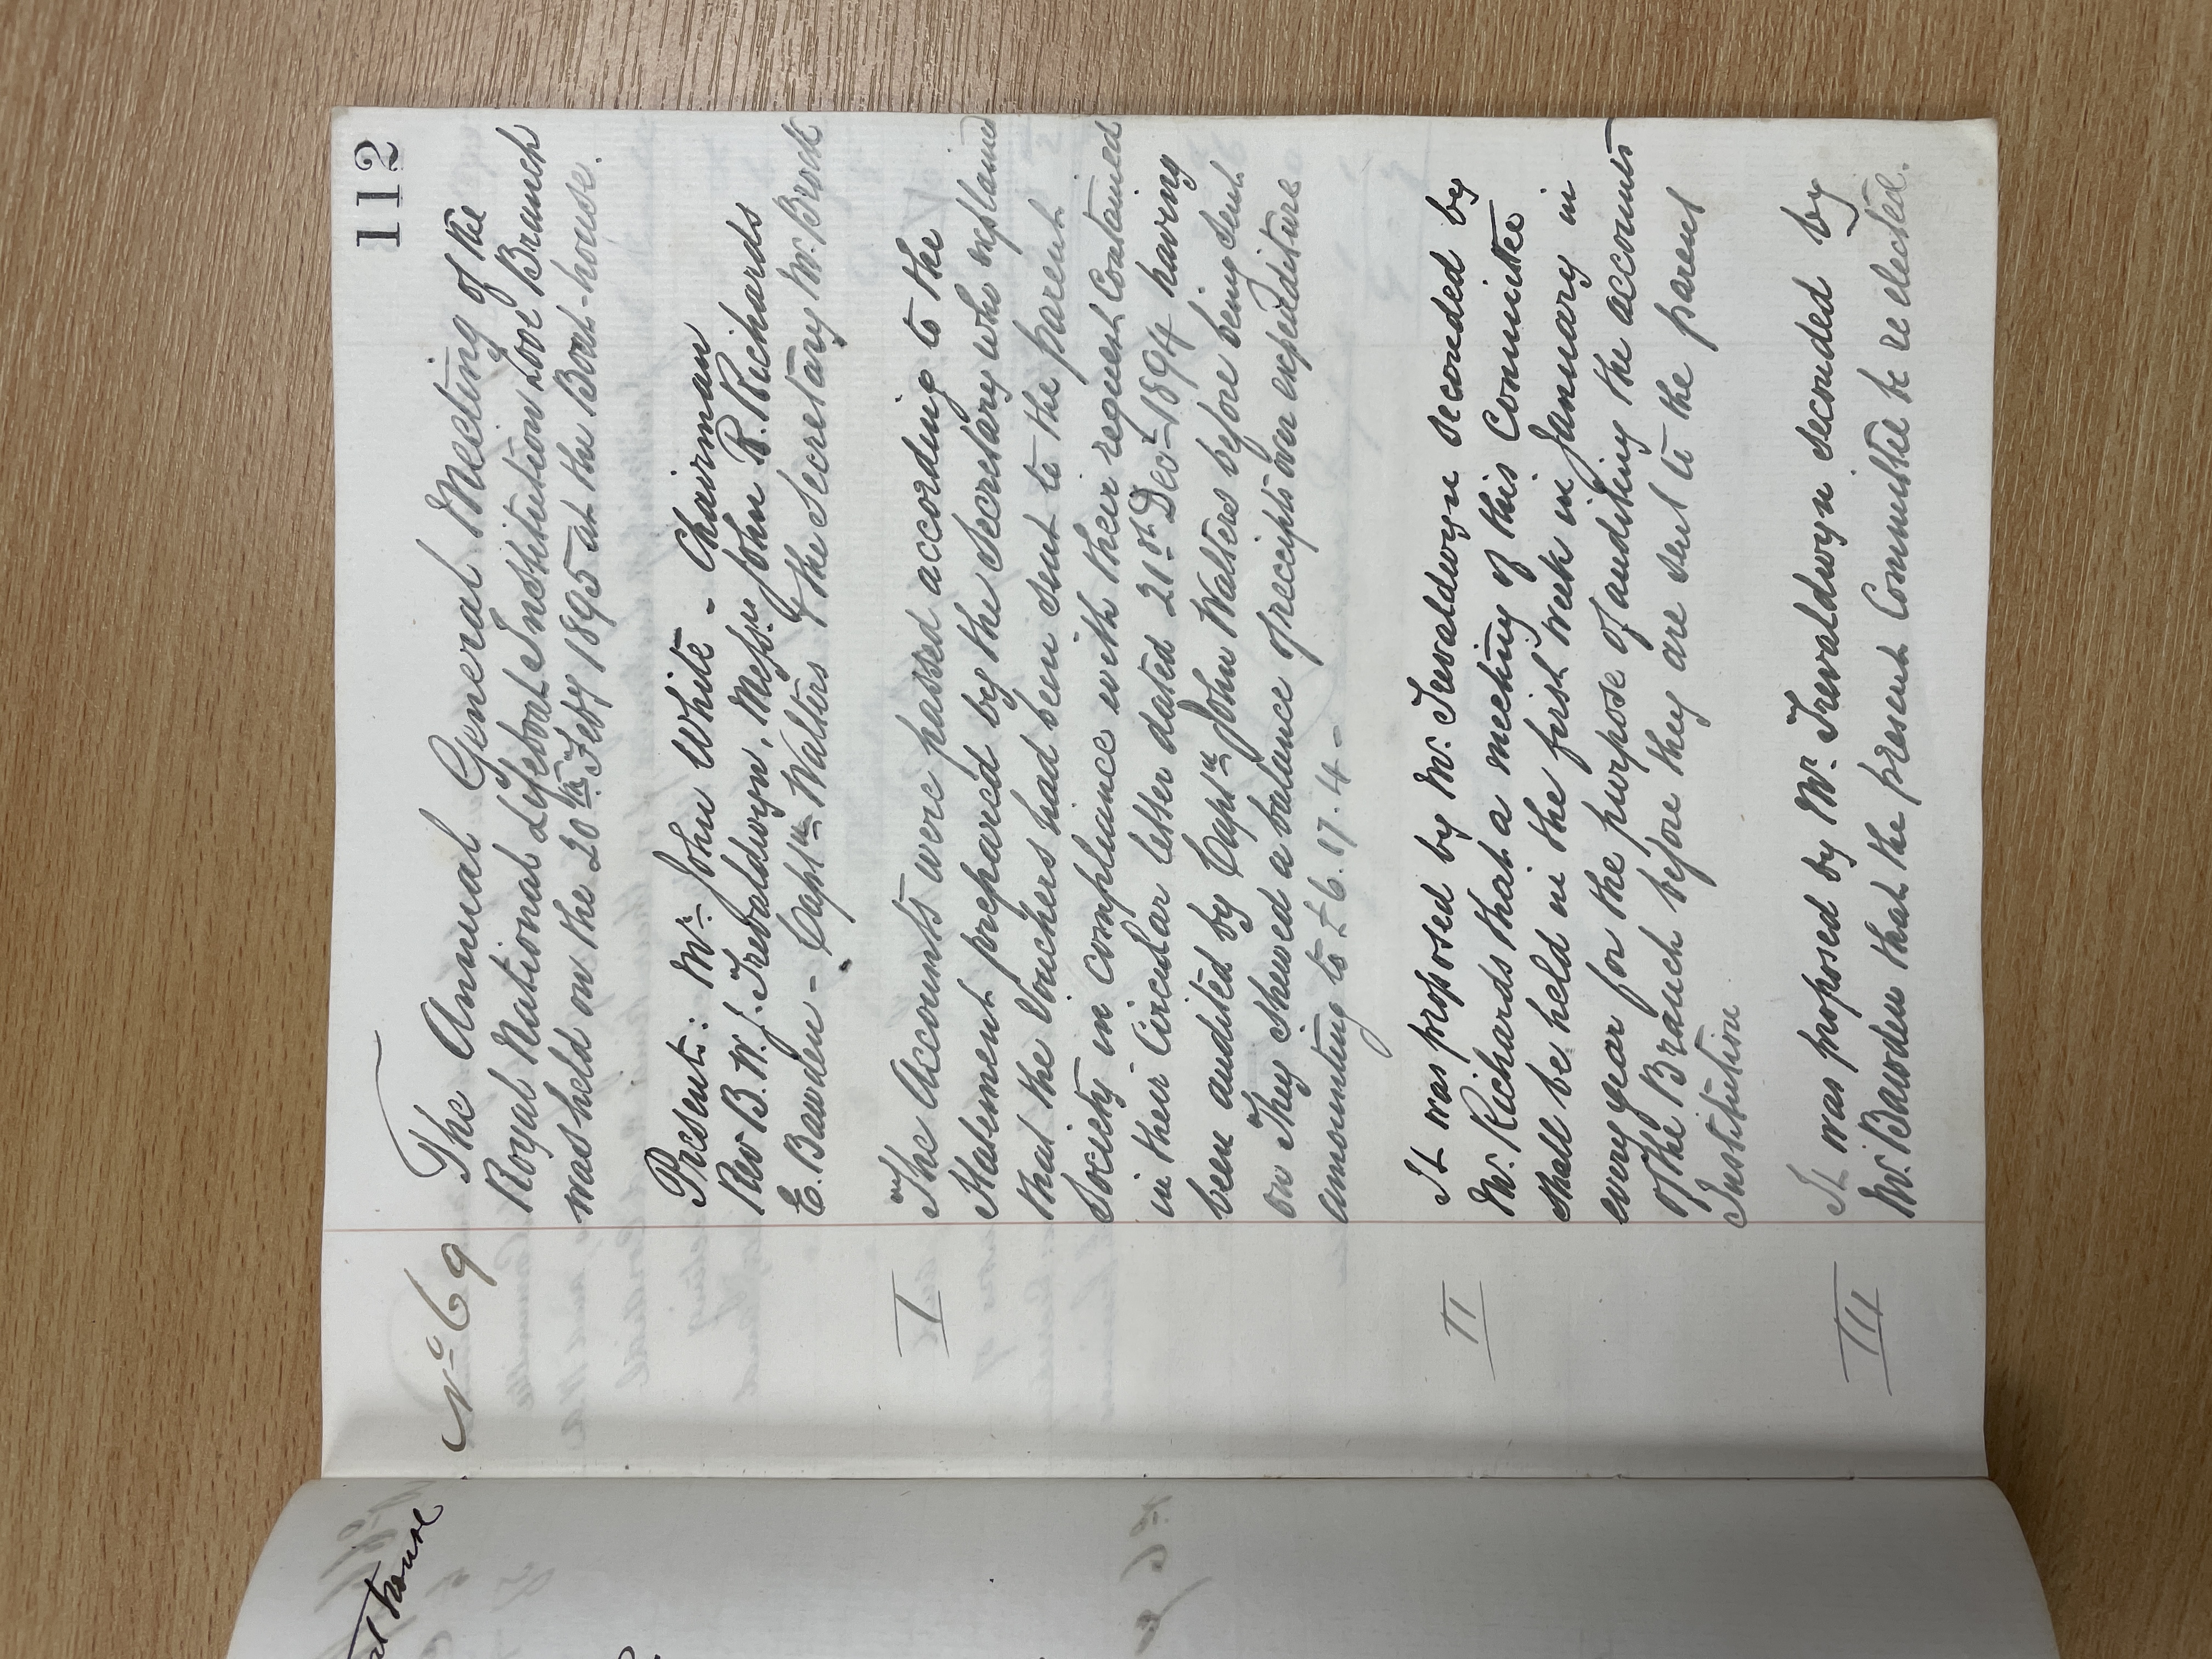 112
No 69
The Annual General Meeting of the
Royal National Lifeboat Institution Looe Branch
was held on the 20th Feby 1895 at the Boat-house.
Present: Mr John White - Chairman
Rev B. W. J. Trevaldwyn, Messrs John R. Richards
E. Bawden - Captn Walters & the Secretary Mr. Brock
I
The Accounts were passed according to the
Statement prepared by the Secretary who explained
that the Vouchers had been sent to the parent
Society in compliance with their request contained
in their Circular letter dated 21st Decr 1894 having
been audited by Captn John Walters before being sent
on They shewed a balance of receipts over expenditure
amounting to £6.17.4-
II
It was proposed by Mr. Trevaldwyn seconded by
Mr. Richards that a meeting of this Committee
shall be held in the first week in January in
every year for the purpose of auditing the accounts
of the Branch before they are sent to the parent
Institution
III
It was proposed by Mr. Trevaldwyn seconded by
Mr. Bawden that the present Committee be re elected.
house